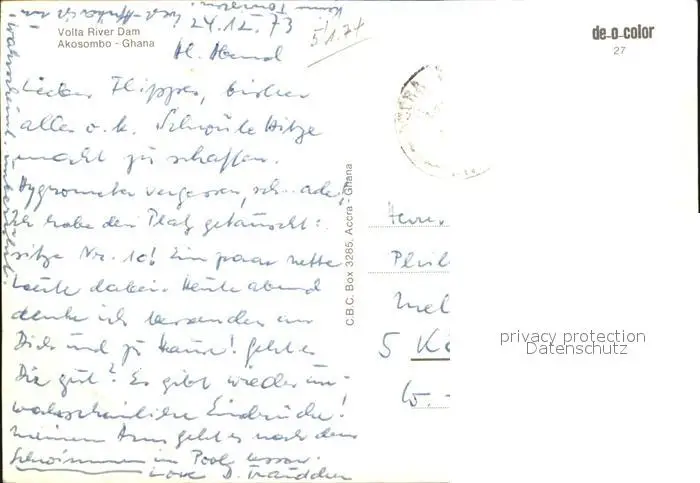 Volta River Dam
Akosombo - Ghana
24.12.73
5/1.74
Hl. Abend
Lieber Flipper, bisher
alles o.k. Schwüle Hitze
macht zu schaffen.
Hygrometer vergessen, schade!
Ich habe den Platz getauscht:
sitze Nr. 10! Ein paar nette
Leute dabei. Heute abend
denke ich besonders an
Dich und zu Hause! Geht es
Dir gut? Es gibt wieder un-
wahrscheinliche Eindrücke!
Meinem Arm geht es nach dem
Schwimmen im Pool besser.
Love D.
C.B.C. Box 3285. Accra - Ghana
de-o-color
27
Herrn
Phil
Mel
5 Kö
W. -
privacy protection
Datenschutz